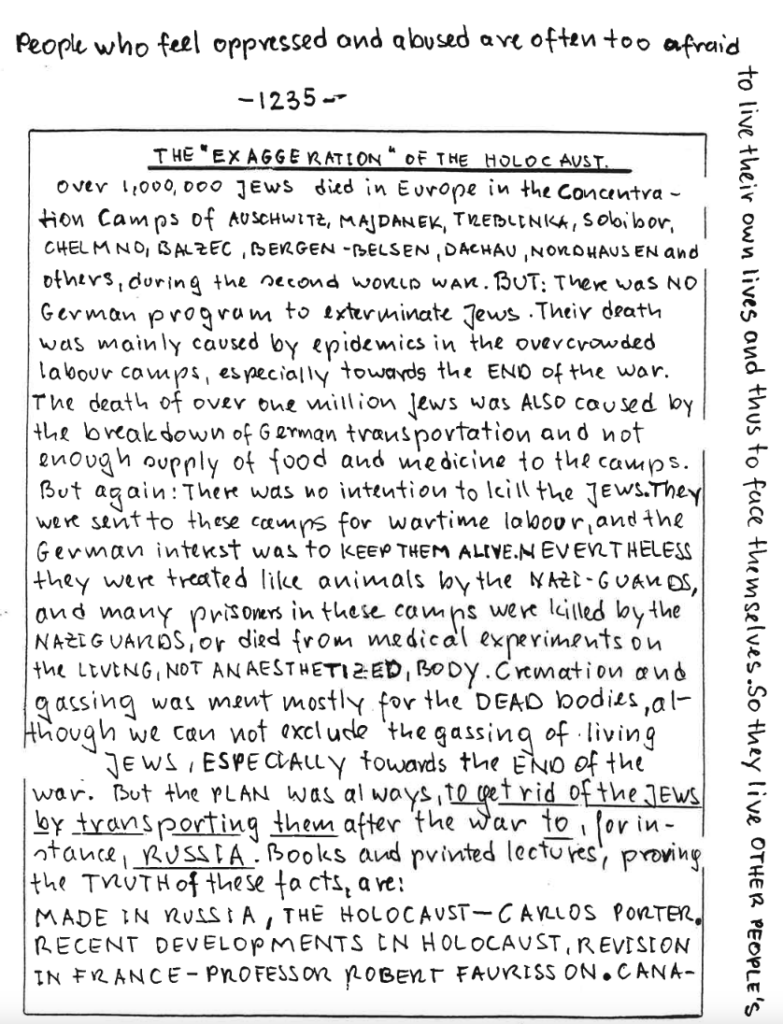 People who feel oppressed and abused are often too afraid
-1235-
THE "EXAGGERATION" OF THE HOLOCAUST.
over 1,000,000 JEWS died in Europe in the Concentra-
tion Camps of AUSCHWITZ, MAJDANEK, TREBLINKA, Sobibor,
CHELMNO, BALZEC, BERGEN-BELSEN, DACHAU, NORDHAUSEN and
others, during the second WORLD WAR. BUT: There was NO
German program to exterminate Jews. Their death
was mainly caused by epidemics in the overcrowded
labour camps, especially towards the END of the war.
The death of over one million Jews was ALSO caused by
the breakdown of German transportation and not
enough supply of food and medicine to the camps.
But again: There was no intention to kill the JEWS. They
were sent to these camps for wartime labour, and the
German interest was to KEEP THEM ALIVE. NEVERTHELESS
they were treated like animals by the NAZI-GUARDS,
and many prisoners in these camps were killed by the
NAZIGUARDS, or died from medical experiments on
the LIVING, NOT ANAESTHETIZED, BODY. Cremation and
gassing was ment mostly for the DEAD bodies, al-
though we can not exclude the gassing of living
JEWS, ESPECIALLY towards the END of the
war. But the PLAN was always, to get rid of the JEWS
by transporting them after the war to, for in-
stance, RUSSIA. Books and printed lectures, proving
the TRUTH of these facts, are:
MADE IN RUSSIA, THE HOLOCAUST-CARLOS PORTER.
RECENT DEVELOPMENTS IN HOLOCAUST, REVISION
IN FRANCE-PROFESSOR ROBERT FAURISSON. CANA-
to live their own lives and thus to face themselves. So they live OTHER PEOPLE'S